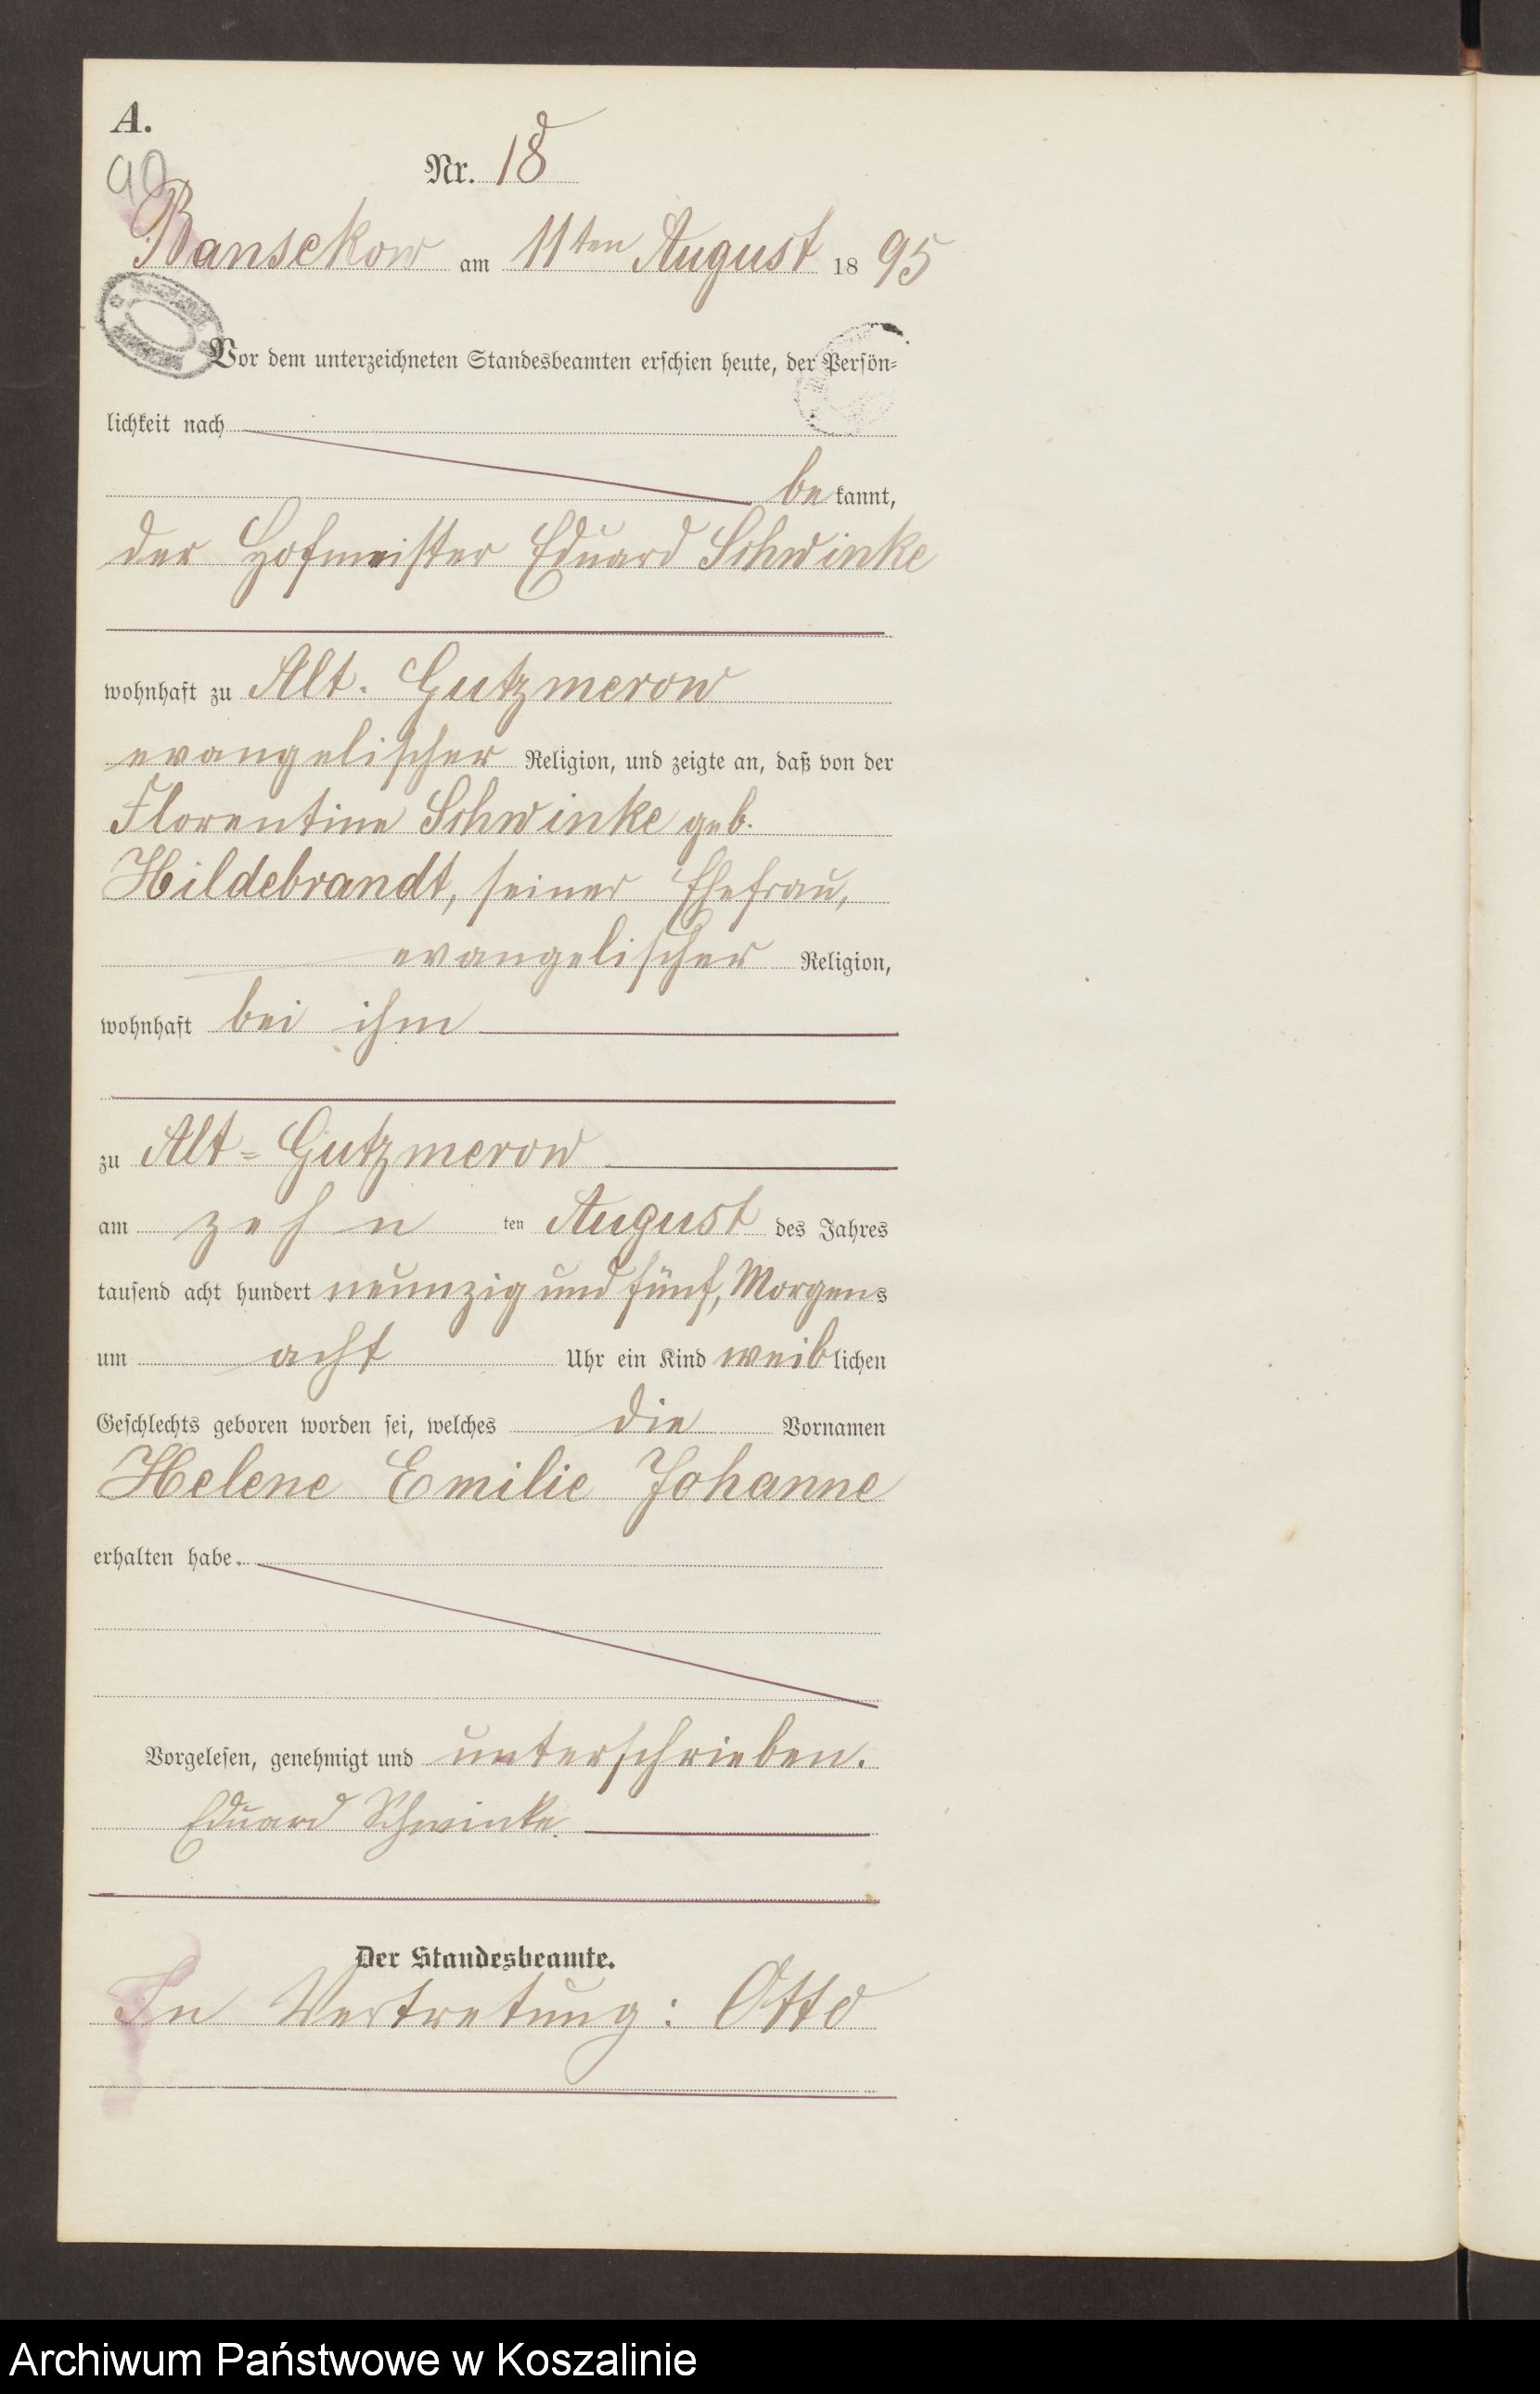 A.
90
Nr. 18
Bansekow am 11ten August 1895
Vor dem unterzeichneten Standesbeamten erschien heute, der Persön-
lichkeit nach
be kannt,
der Hofmeister Eduard Schwinke
wohnhaft zu Alt. Gutzmerow
evangelischer Religion, und zeigte an, daß von der
Florentine Schwinke geb.
Hildebrandt, seiner Ehefrau,
evangelischer Religion,
wohnhaft bei ihm
zu Alt-Gutzmerow
am zehn ten August des Jahres
tausend acht hundert neunzig und fünf, Morgens
um acht Uhr ein Kind weiblichen
Geschlechts geboren worden sei, welches die Vornamen
Helene Emilie Johanne
erhalten habe.
Vorgelesen, genehmigt und unterschrieben.
Eduard Schwinke
Der Standesbeamte.
In Vertretung: Otto
Archiwum Państwowe w Koszalinie